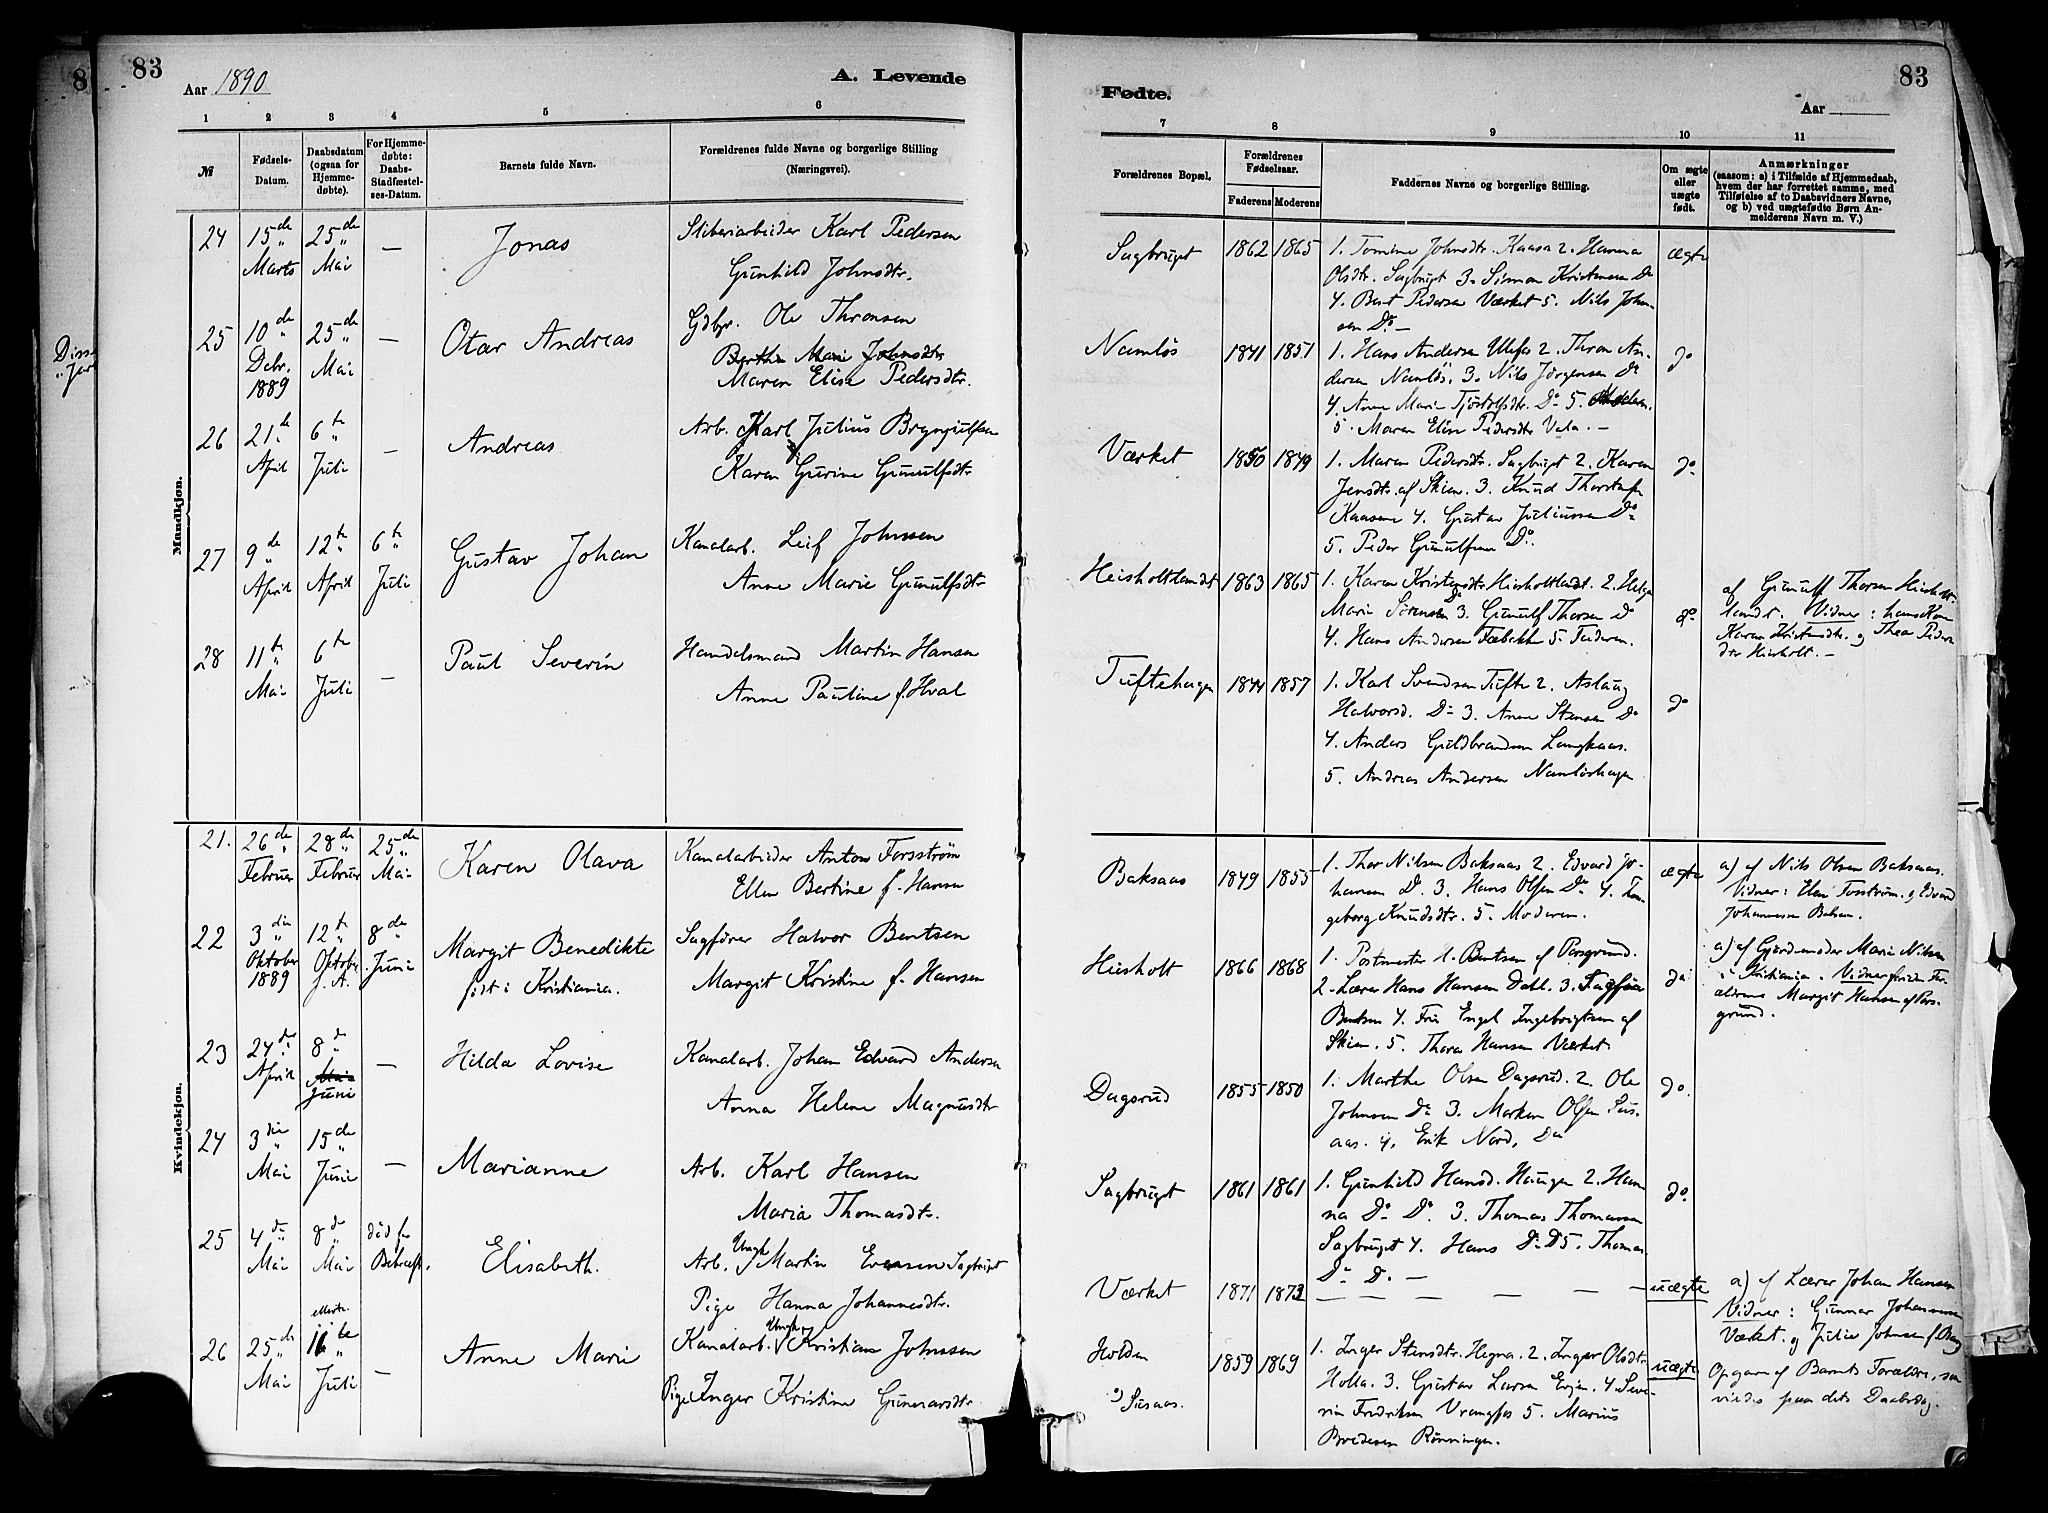 83
Aar 1890
A. Levende
1 2 3 4 5 6
№
Fødsels-
Datum.
Daabsdatum
(ogsaa for
Hjemme-
døbte).
For Hjemme-
døbte:
Daabs-
Stadfæstel-
ses-Datum.
Barnets fulde Navn.
Forældrenes fulde Navne og borgerlige Stilling
(Næringsvei).
Mandkjøn.
24 15de Marts 25de Mai — Jonas
Sliberiarbeider Karl Pedersen
Gunhild Johnsdtr.
25 10de Debr. 1889 25de Mai — Otar Andreas
Gdbr. Ole Thronsen
Berthe Marie Johnsdtr
Maren Elise Pedersdtr.
26 21de April 6te Juli — Andreas
Arb. Karl Julius Brynjulfsen
Karen Gurine Gunulfsdtr
27 9de April 12te April 6te Juli Gustav Johan
Kanalarb. Leif Johnsen
Anne Marie Gunulfsdtr
28 11te Mai 6te Juli — Paul Severin
Handelsmand Martin Hansen
Anne Pauline f. Hval
Kvindekjøn.
21. 26de Februar 28de Februar 25de Mai Karen Olava
Kanalarbeider Anton Forsstrøm
Ellen Bertine f. Hansen
22 3die Oktober 1889 12te Oktober f. A. 8de Juni Margit Benedikte
født i Kristiania.
Sagfører Halvor Bentsen
Margit Kristine f. Hansen
23 24de April 8de Mai Juni — Hilda Lovise
Kanalarb. Johan Edvard Andersen
Anna Helene Magnusdtr
24 3die Mai 15de Juni — Marianne
Arb. Karl Hansen
Maria Thomasdtr.
25 4de Mai 8de Mai død før Bekræft. Elisabeth.
Arb. Ungk. Martin Evensen Sagbruget
Pige Hanna Johannesdtr.
26 25de Mai 11te Juli — Anne Marie
Kanalarb. Ungk. Kristian Johnsen
Pige Inger Kristine Gunnarsdtr.
Fødte.
83
Aar
7 8 9 10 11
Forældrenes Bopæl.
Forældrenes
Fødselsaar.
Faderens Moderens
Faddernes Navne og borgerlige Stilling.
Om ægte
eller
uægte
født.
Anmærkninger
(saasom: a) i Tilfælde af Hjemmedaab,
hvem der har forrettet samme, med
Tilføielse af to Daabsvidners Navne,
og b) ved uægtefødte Børn An-
melderens Navn m. V.)
Sagbruget 1862 1865 1. Tomine Johnsdtr. Kaasa 2. Hanna ægte
Olsdtr. Sagbruget 3. Simon Kristensen Do
4. Bent Pedersen Værket 5. Nils John-
sen Do —
Namløs 1841 1851 1. Hans Andersen Ulefos 2. Thron An- do
dersen Namløs. 3. Nils Jørgensen Do
4. Anne Marie Tjøstolfsdtr. Do 5.
5. Maren Elise Pedersdtr Vala. —
Værket 1850 1849 1. Maren Pedersdtr. Sagbruget 2. Karen do
Jensdtr. af Skien. 3. Knud Thorstensen
Kaasene 4. Gustav Juliussen Do
5. Peder Gunulfsen Do.
Heisholtlandt 1863 1865 1. Karen Kristensdtr Heisholtlandt. 2. Helge do
Marie Sørensen Do 3. Gunulf Thorsen Do
4. Hans Andersen Fæbakke 5. Faderen.
af Gunulf Thorsen Heisholt-
landt. Vidner: hans Kone
Karen Kristensdtr. og Thea Peders-
dtr Heisholt. —
Tuftehagen 1844 1857 1. Karl Svendsen Tufte 2. Aslaug do
Halvorsd. Do 3. Anne Stensen Do
4. Anders Guldbrandsen Langkaas.
5. Andreas Andersen Namløshagen
Baksaas 1849 1855 1. Thor Nilsen Baksaas 2. Edvard Jo- ægte
hansen Do 3. Hans Olsen Do 4. In-
geborg Knudsdtr. 5. Moderen.
a) af Nils Olsen Baksaas.
Vidner: Elen Forsstrøm og Edvard
Johannesen Baksaas.
Heisholt 1866 1868 1. Postmester H. Bentsen af Porsgrund. do
2. Lærer Hans Hansen Dahl. 3. Sagfører
Bentsen 4. Fru Engel Ingebrigtsen af
Skien. 5. Thora Hansen Værket
a) af Gjordemoder Marie Nilsen
i Kristiania. Vidner foruden For-
ældrene Margit Hansen af Pors-
grund.
Dagsrud 1855 1850 1. Marthe Olsen Dagsrud. 2. Ole do.
Johnsen Do 3. Marken Olsen Sus-
aas. 4. Erik Nord, Do
Sagbruget 1861 1861 1. Gunhild Hansd. Haugen 2. Han- do.
na Do Do 3. Thomas Thomassen
Sagbruget 4. Hans Do Do 5. Thomas
Do Do —
Værket 1871 1872 — — — — uægte
a) af Lærer Johan Hansen
Vidner: Gunnar Johannesen
Værket og Julie Johnsen f. Berg
Holden
Susaas. 1859 1869 1. Inger Stensdtr. Hegna. 2. Inger Olsdtr. uægte
Holla. 3. Gustav Larsen Eejen. 4. Seve-
rin Fredriksen Vrangfos 5. Marius
Bredesen Rønningen.
Opgav af Barnets Forældre, som
viedes paa dets Daabsdag.